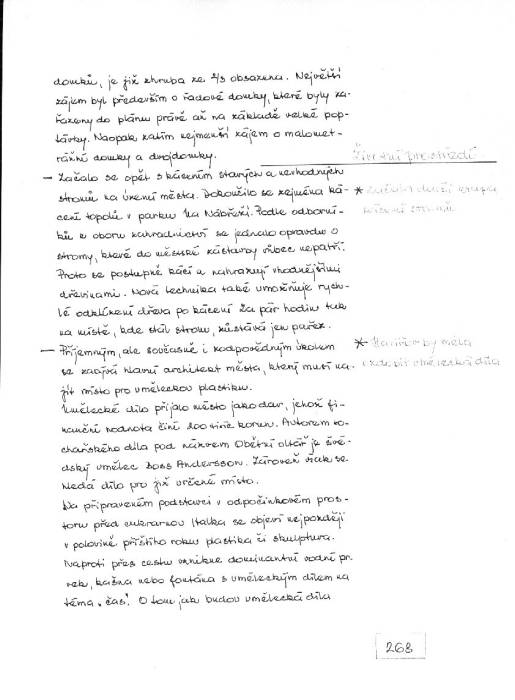 domků, je již zhruba ze 2/3 obsazena. Největší
zájem byl především o řadové domky, které byly za-
řazeny do plánu právě až na základě velké pop-
távky. Naopak zatím nejmenší zájem o malomet-
rážní domky a dvojdomky.
Životní prostředí
— Začalo se opět s kácením starých a nevhodných
stromů na území města. Dokončilo se zejména ká-
* Začala další etapa
kácení stromů
cení topolů v parku Na Nábřeží. Podle odborní-
ků z oboru zahradnictví se jednalo opravdu o
stromy, které do městské zástavby vůbec nepatří.
Proto se postupně kácí a nahrazují vhodnějšími
dřevinami. Nová technika také umožňuje rych-
lé odklízení dřeva po kácení. Za pár hodin tak
na místě, kde stál strom, zůstává jen pařez.
— Příjemným, ale současně i zodpovědným úkolem
* by měla
zdobit umělecká díla
se zabývá hlavní architekt města, který musí na-
jít místo pro uměleckou plastiku.
Umělecké dílo přijalo město jako dar, jehož fi-
nanční hodnota činí 200 tisíc korun. Autorem so-
chařského díla pod názvem Obětní oltář je švé-
dský umělec Boss Andersson. Zároveň však se
hledá dílo pro již určené místo.
Na připraveném podstavci v odpočinkovém pros-
toru před cukrárnou Italka se objeví nejpozději
v polovině příštího roku plastika či skulptura.
Naproti přes cestu vznikne dominantní vodní pr-
vek, kašna nebo fontána s uměleckým dílem na
téma „čas". O tom jak budou umělecká díla
268